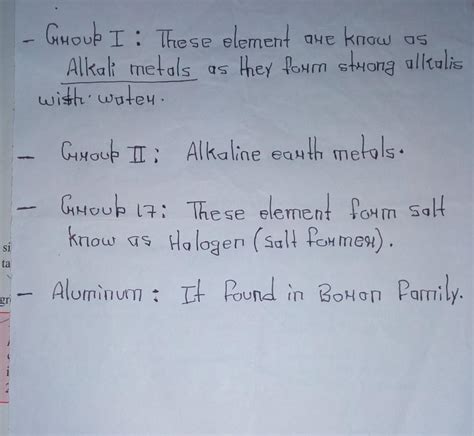 - Group I : These element are know as
Alkali metals as they form strong alkalis
with water.
- Group II : Alkaline earth metals.
- Group 17 : These element form salt
know as Halogen (salt former).
- Aluminum : It found in Boron Family.
si
ta
gr